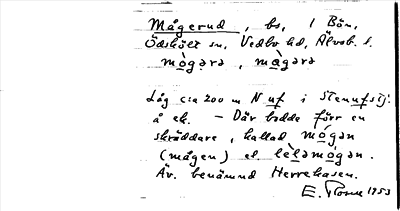 Mågerud, bs, i Bön,
Ödskölt sn, Vedbo hd, Älvsb. l.
mògərə, mæ̀gərə
Låg c:a 200 m N uf i Stenufstj.
å ek. – Där bodde förr en
skräddare, kallad mógən
(mågen) el. lèləmógən.
Äv. benämnd Herrekasen.
E. 1953